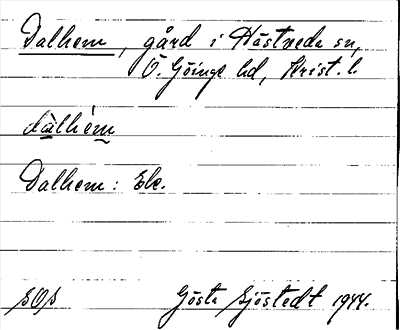 Dalhem, gård i Hästveda sn,
Ö. Göinge hd, Krist. l.
dàlhém
Dalhem: Ek.
SOS Gösta Sjöstedt 1944.